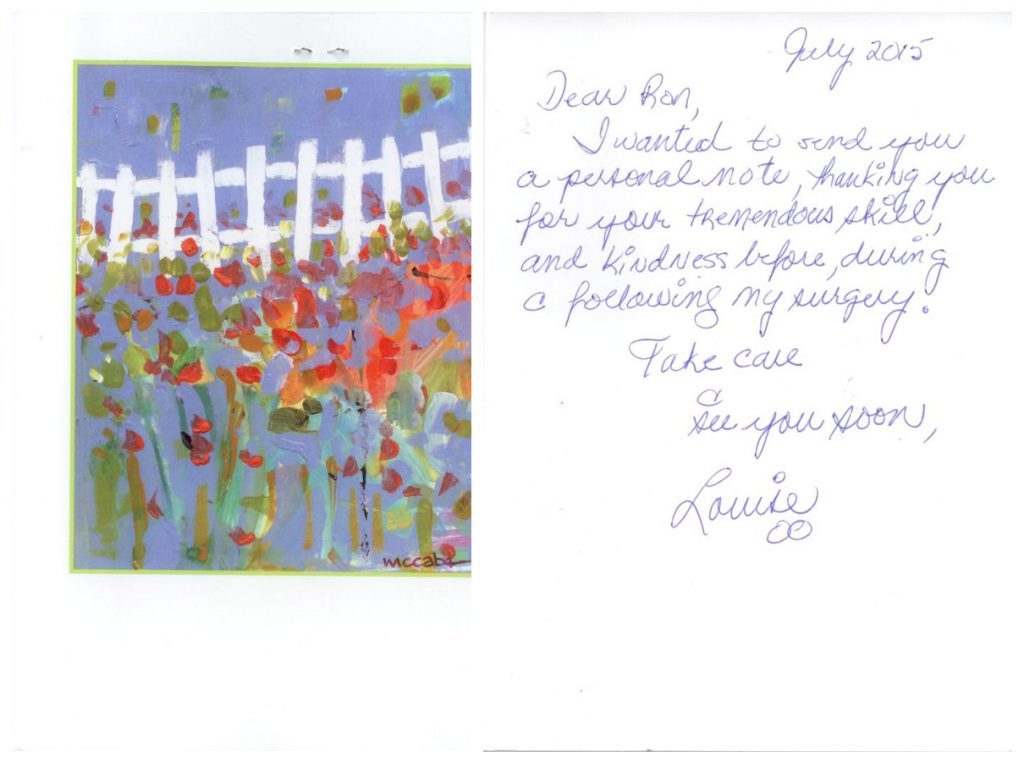 mccabe
July 2015
Dear Ron,
I wanted to send you
a personal note, thanking you
for your tremendous skill,
and kindness before, during
c following my surgery!
Take care
c
see you soon,
Louise